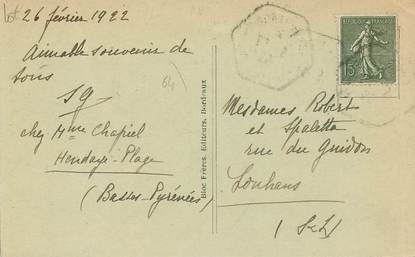 26 février 1922
Aimable souvenir de
tous
SG
chez Mme Chapiel
Hendaye-Plage
(Basses-Pyrénées)
64
Bloc Frères, Editeurs, Bordeaux
REPUBLIQUE FRANÇAISE
15c
Mesdames Robert
et Spaletta
rue du Guidon
Louhans
(S-L)